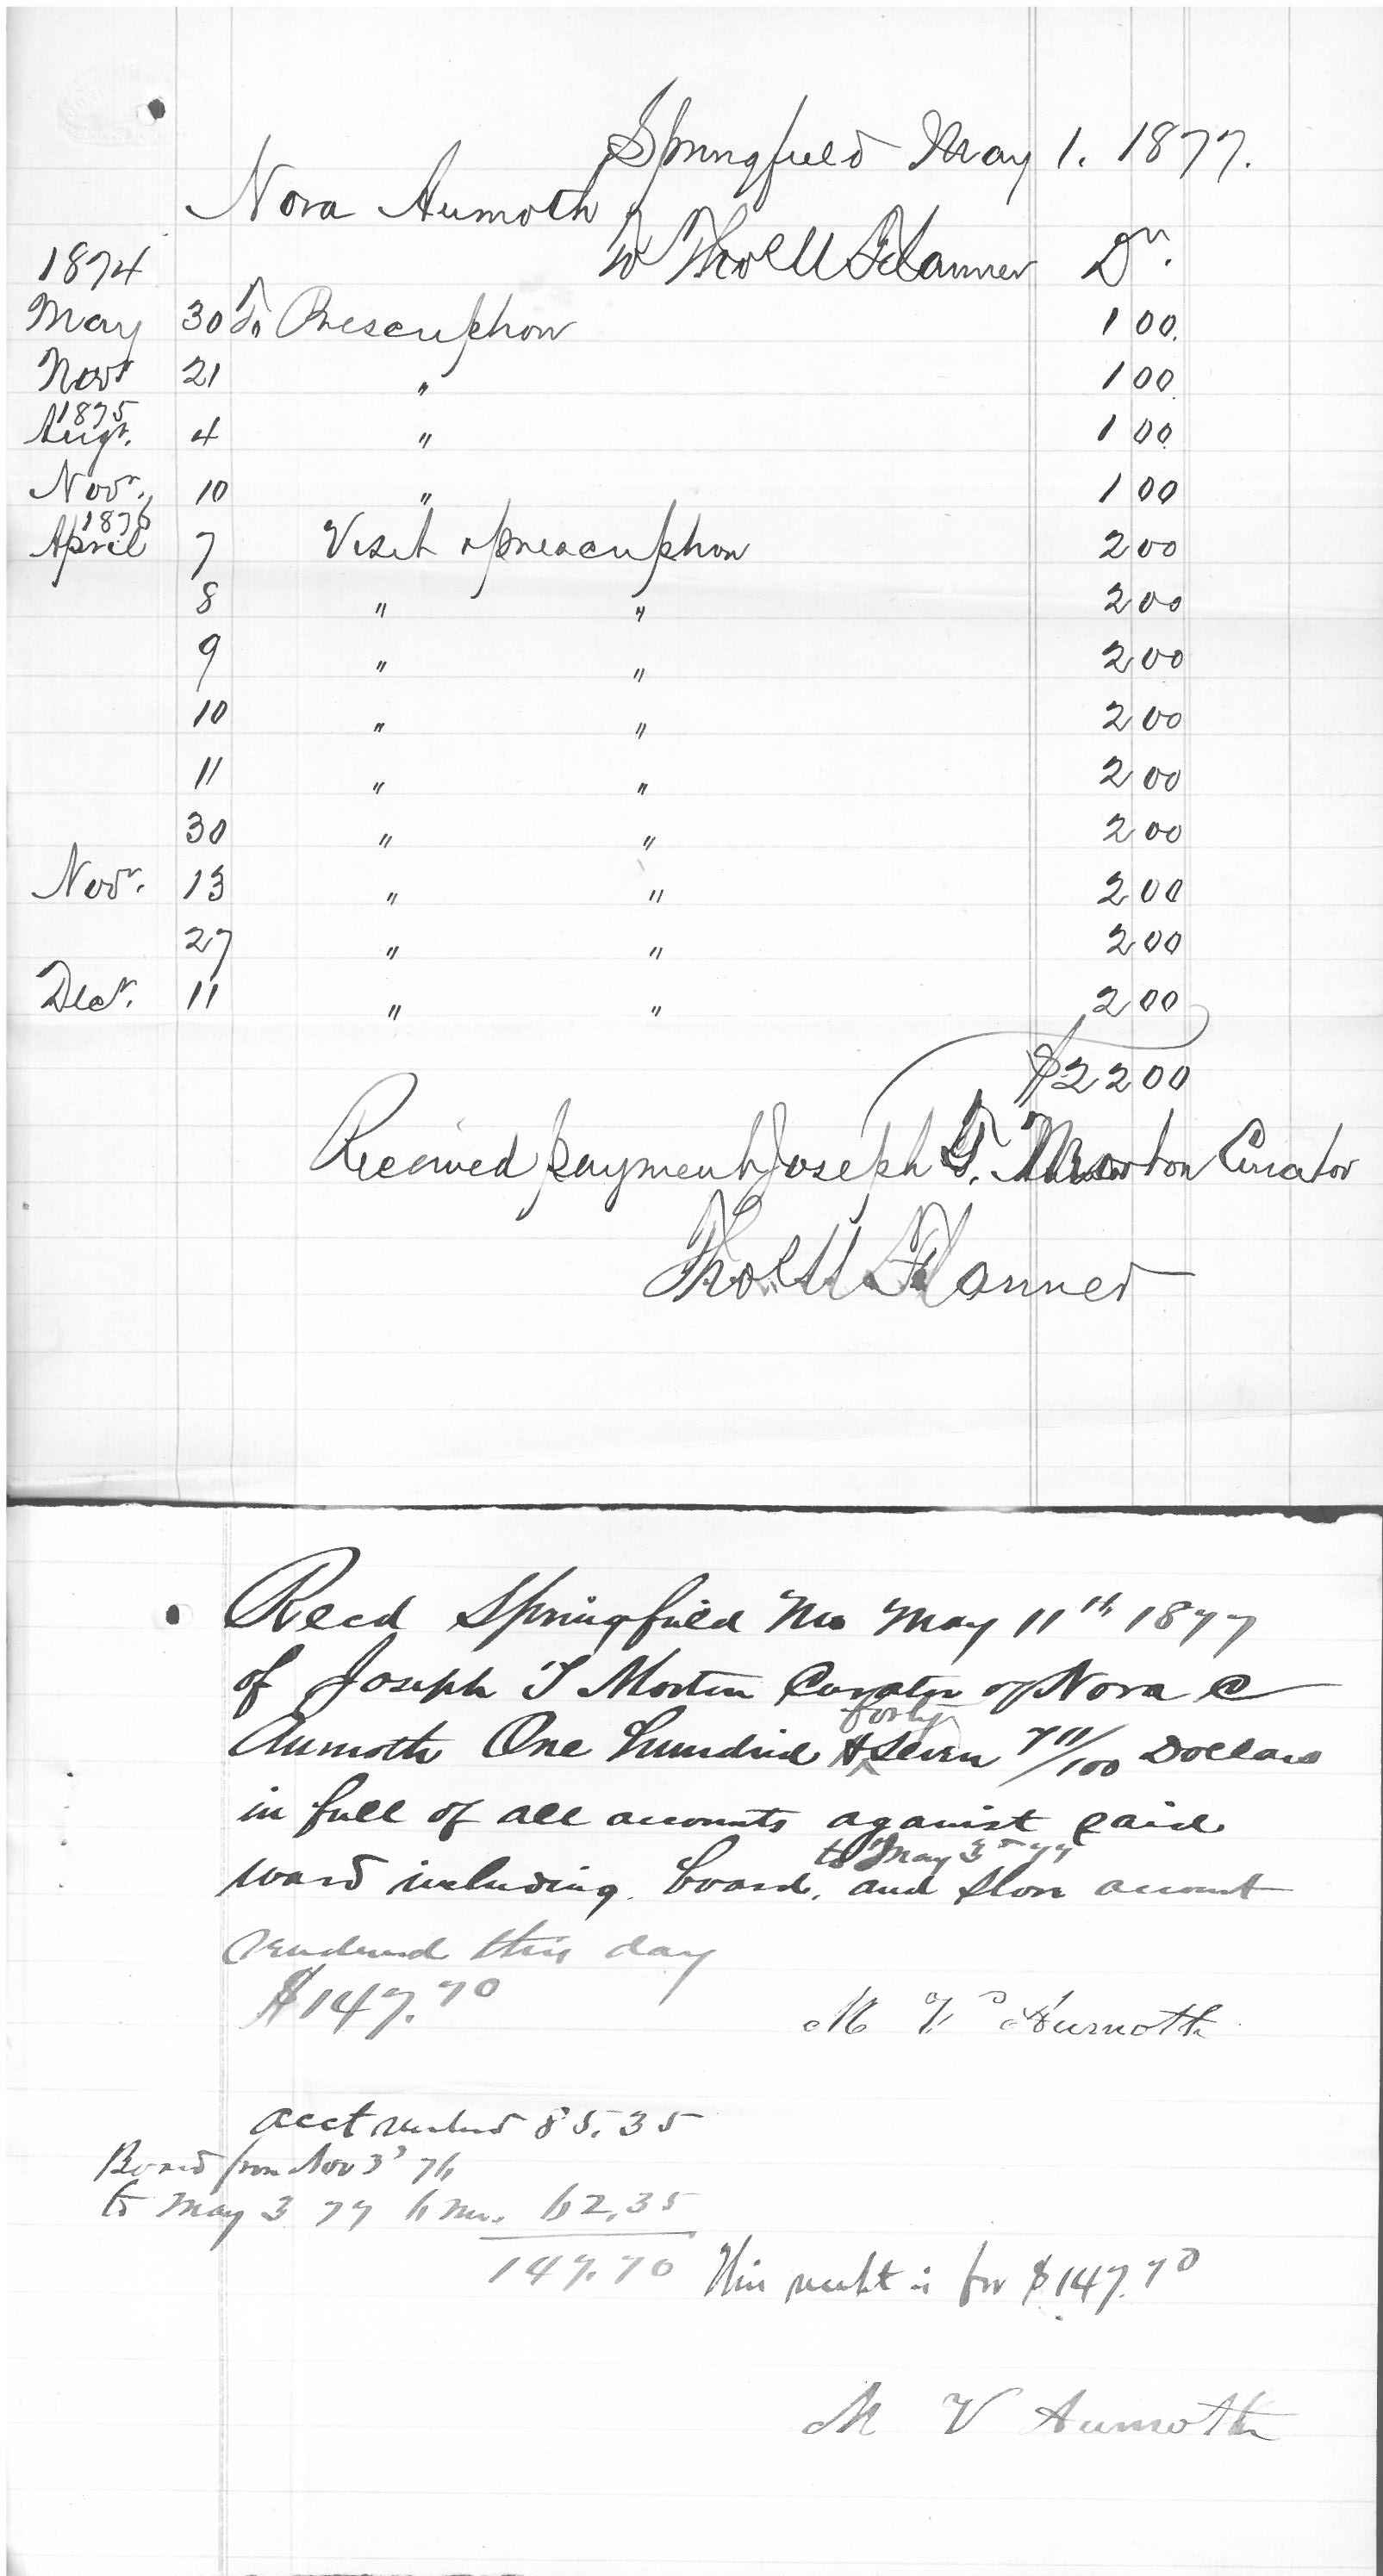 Springfield May 1. 1877.
Nora Aumoth
To Thos U Flanner Dr.
1874
May 30 To Prescription 1 00.
Novr 21 " 1 00
1875
Augt. 4 " 1 00
Novr. 10 " 1 00
1876
April 7 Visit & prescription 2 00
8 " " 2 00
9 " " 2 00
10 " " 2 00
11 " " 2 00
30 " " 2 00
Novr. 13 " " 2 00
27 " " 2 00
Decr. 11 " " 2 00
$22 00
Received payment Joseph T. Morton Curator
Thos U Flanner
Recd Springfield Mo May 11th 1877
of Joseph T Morton Curator of Nora C
Aumoth One hundred & forty Seven 70/100 Dollars
in full of all accounts against said
ward including board, to May 3d 77 and Store account
rendered this day
$147.70 M V Aumoth
acct rendered 85.35
Board from Nov 3d 76
to May 3 77 6 mo. 62.35
147.70 This receipt is for $147.70
M V Aumoth